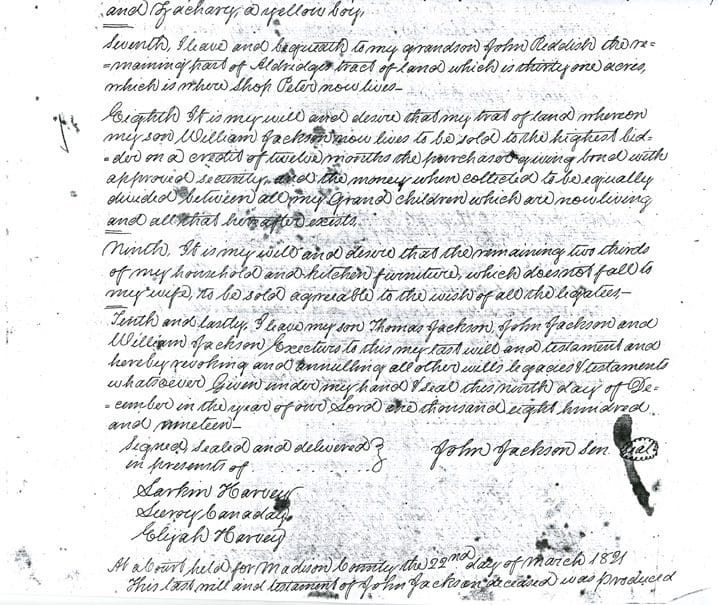 and Zachary, a yellow boy,
Seventh, I leave and bequeath to my grandson John Reddish the re=
=maining part of Aldridges tract of land which is thirty one acres,
which is where Shop Peter now lives—
Eighth It is my will and desire that my trat of land whereon
my son William Jackson now lives to be sold to the highest bid=
=der on a credit of twelve months the purchasor giving bond with
approved security, and the money when collected to be equally
divided between all my Grand children which are now living
and all that hereafter exists.
Ninth, It is my will and desire that the remaining two thirds
of my household and kitchen furniture, which does not fall to
my wife, to be sold agreable to the wish of all the legatees—
Tenth and lastly, I leave my son Thomas Jackson, John Jackson and
William Jackson Exectors to this my last will and testament and
hereby revoking and annulling all other wills legacies & testaments
whatsoever Given under my hand & seal this ninth day of De=
=cember in the year of our Lord one thousand eight hundred
and nineteen—
Signed, sealed and delivered } John Jackson Sen Seal
in presents of
Larkin Harvey
Leeroy Canaday
Elijah Harvey
At a Court held for Madison County the 22nd day of March 1821
This last will and testament of John Jackson deceased was produced